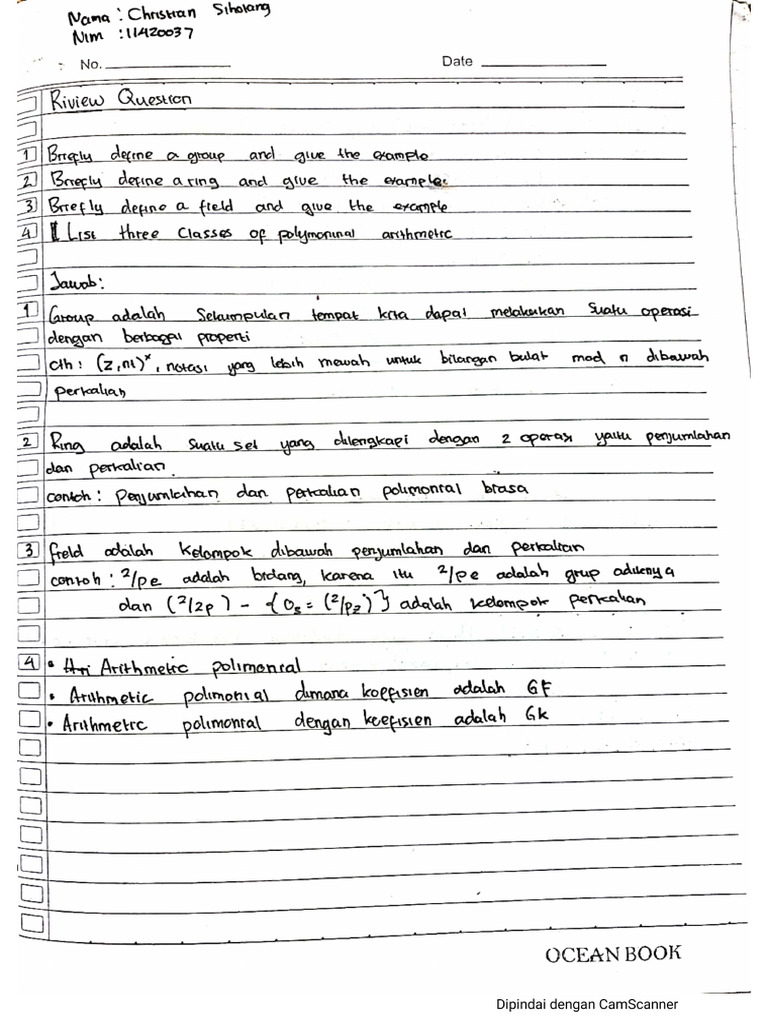 Nama : Christian Siholang
Nim : 11420037
No.
Date
Riview Question
1 Briefly define a group and give the example
2 Briefly define a ring and give the example.
3 Briefly define a field and give the example
4 List three Classes of polymoninal arithmetic
Jawab:
1 Group adalah Sekumpulan tempat kita dapat melakukan Suatu operasi
dengan berbagai properti
cth : (z,nt)ˣ, notasi yang lebih mewah untuk bilangan bulat mod n dibawah
perkalian
2 Ring adalah Suatu set yang dilengkapi dengan 2 operasi yaitu penjumlahan
dan perkalian.
contoh : Penjumlahan dan perkalian polimonial biasa
3 field adalah kelompok dibawah penjumlahan dan perkalian
contoh : ²/pe adalah bidang, karena itu ²/pe adalah grup
dan (²/2p) - adalah kelompok perkalian
4 • Arithmetic polimonial
• Arithmetic polimonial dimana koefisien adalah GF
• Arithmetic polimonial dengan koefisien adalah Gk
OCEAN BOOK
Dipindai dengan CamScanner